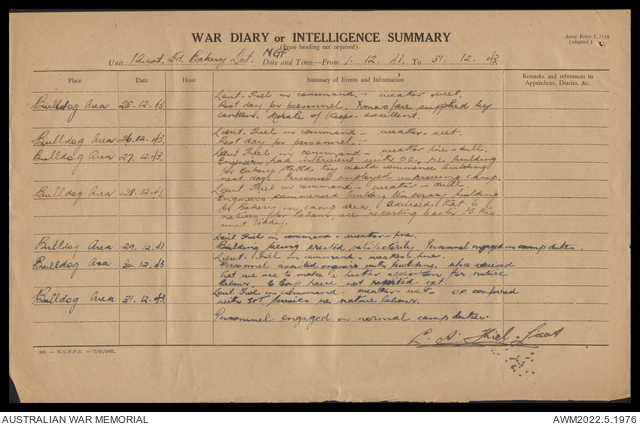 WAR DIARY or INTELLIGENCE SUMMARY
(Erase heading not required).
Army Form C.2118
(adapted.)
Unit Fd. Bakery NGF Date and Time—From 1. 12. 43. To 31. 12. 43.
Place Date Hour Summary of Events and Information Remarks and references to
Appendices, Diaries, &c.
Bulldog Area 25.12.43 Lieut. Thiel in command. - weather wet.
Rest day for personnel. Xmas fare supplied by
canteens. Morale of troops - excellent.
Bulldog Area 26.12.43 Lieut. Thiel in command - weather wet.
Rest day for personnel.
Bulldog Area 27.12.43 Lieut. Thiel in command - weather fine - dull.
Engineers had interview with O.C. re building
for Bakery, stated they would commence building
next day. Personnel employed improving camp.
Bulldog Area 28.12.43 Lieut. Thiel in command - weather - dull.
Engineers commenced building temporary building
for Bakery in camp area. 6
natives for labour, are reporting back to
unit today.
Bulldog Area 29.12.43 Lieut Thiel in command - weather - fine.
Building being erected satisfactorily. Personnel engaged on camp duties.
Bulldog Area 30.12.43 Lieut. Thiel in command - weather fine.
Personnel assisted engineers with building, also advised
that we are to make a further application for native
labour. 6 boys have not reported yet.
Bulldog Area 31.12.43 Lieut. Thiel in command - weather - wet - O.C. conferred
with re native labour.
Personnel engaged on normal camp duties.
L. A. Thiel. Lieut
AUSTRALIAN WAR MEMORIAL
AWM2022.5.1976